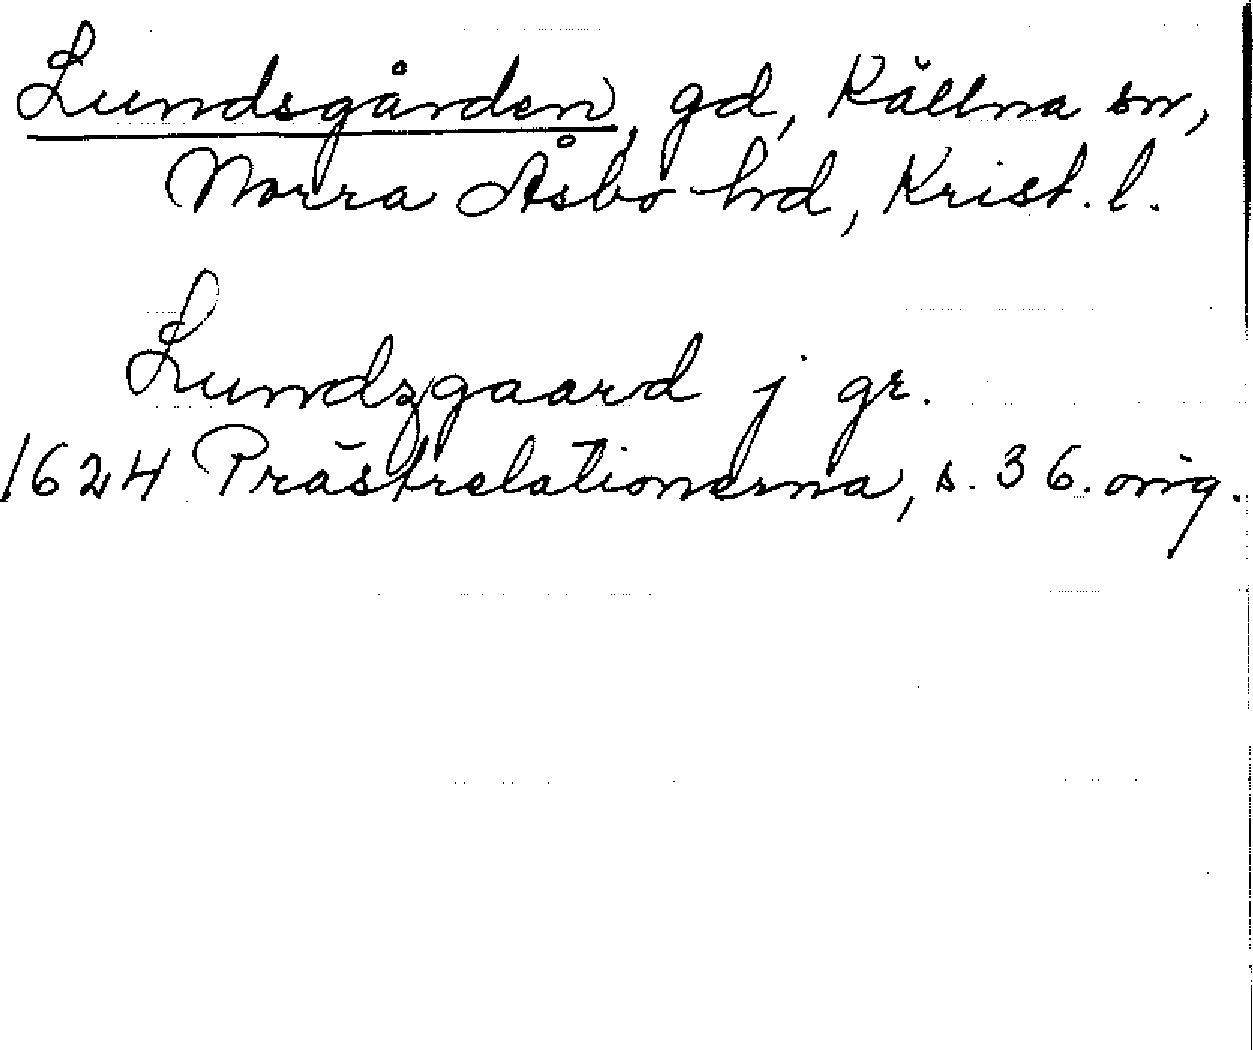 Lundsgården, gd, Källna sn,
Norra Åsbo hd, Krist. l.
Lundzgaard j gr.
1624 Prästrelationerna, s. 36. orig.